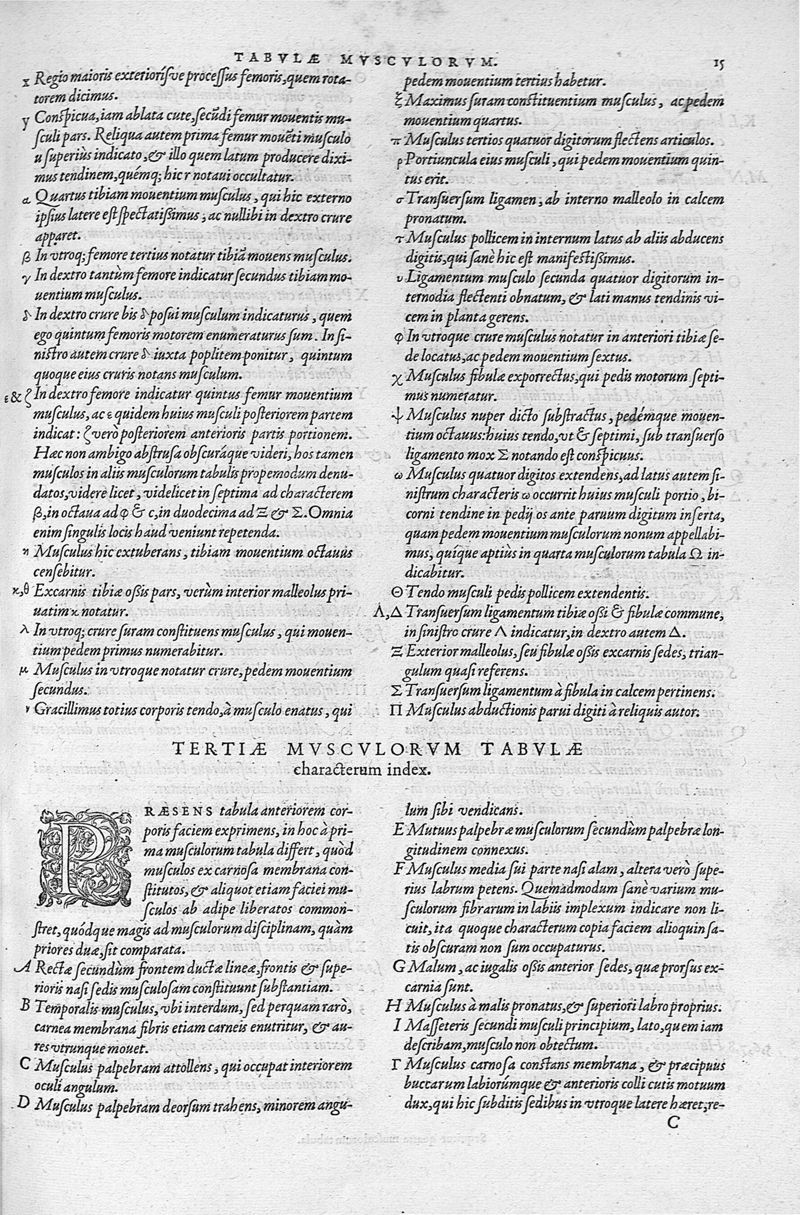 TABVLÆ MVSCVLORVM. 15
x Regio maioris exteriorísve processus femoris, quem rota-
torem dicimus.
y Conspicua, iam ablata cute, secũdi femur mouentis mu-
sculi pars. Reliqua autem prima femur mouẽti musculo
u superiùs indicato, & illo quem latum producere dixi-
mus tendinem, quémq; hic r notaui occultatur.
α Quartus tibiam mouentium musculus, qui hic externo
ipsius latere est spectatissimus, ac nullibi in dextro crure
apparet.
β In vtroq; femore tertius notatur tibiã mouens musculus.
γ In dextro tantùm femore indicatur secundus tibiam mo-
uentium musculus.
δ In dextro crure bis δ posui musculum indicaturus, quem
ego quintum femoris motorem enumeraturus sum. In si-
nistro autem crure δ iuxta poplitem ponitur, quintum
quoque eius cruris notans musculum.
ε & ζ In dextro femore indicatur quintus femur mouentium
musculus, ac ε quidem huius musculi posteriorem partem
indicat: ζ verò posteriorem anterioris partis portionem.
Hæc non ambigo abstrusa obscuráque videri, hos tamen
musculos in aliis musculorum tabulis propemodum denu-
datos, videre licet, videlicet in septima ad characterem
β, in octaua ad φ & c, in duodecima ad Ξ & Σ. Omnia
enim singulis locis haud veniunt repetenda.
η Musculus hic extuberans, tibiam mouentium octauus
censebitur.
κ, θ Excarnis tibiæ ossis pars, verùm interior malleolus pri-
uatim κ notatur.
λ In vtroq; crure suram constituens musculus, qui mouen-
tium pedem primus numerabitur.
μ Musculus in vtroque notatur crure, pedem mouentium
secundus.
ν Gracillimus totius corporis tendo, à musculo enatus, qui
pedem mouentium tertius habetur.
ξ Maximus suram constituentium musculus, ac pedem
mouentium quartus.
π Musculus tertios quatuor digitorum flectens articulos.
ρ Portiuncula eius musculi, qui pedem mouentium quin-
tus erit.
σ Transuersum ligamen, ab interno malleolo in calcem
pronatum.
τ Musculus pollicem in internum latus ab aliis abducens
digitis, qui sanè hic est manifestissimus.
υ Ligamentum musculo secunda quatuor digitorum in-
ternodia flectenti obnatum, & lati manus tendinis vi-
cem in planta gerens.
φ In vtroque crure musculus notatur in anteriori tibiæ se-
de locatus, ac pedem mouentium sextus.
χ Musculus fibulæ exporrectus, qui pedis motorum septi-
mus numeratur.
ψ Musculus nuper dicto substractus, pedémque mouen-
tium octauus: huius tendo, vt & septimi, sub transuerso
ligamento mox Σ notando est conspicuus.
ω Musculus quatuor digitos extendens, ad latus autem si-
nistrum characteris ω occurrit huius musculi portio, bi-
corni tendine in pedij os ante paruum digitum inserta,
quam pedem mouentium musculorum nonum appellabi-
mus, quíque aptius in quarta musculorum tabula Ω in-
dicabitur.
Θ Tendo musculi pedis pollicem extendentis.
Λ, Δ Transuersum ligamentum tibiæ ossi & fibulæ commune,
in sinistro crure Λ indicatur, in dextro autem Δ.
Ξ Exterior malleolus, seu fibulæ ossis excarnis sedes, trian-
gulum quasi referens.
Σ Transuersum ligamentum à fibula in calcem pertinens.
Π Musculus abductionis parui digiti à reliquis autor.
TERTIÆ MVSCVLORVM TABVLÆ
characterum index.
PRÆSENS tabula anteriorem cor-
poris faciem exprimens, in hoc à pri-
ma musculorum tabula differt, quòd
musculos ex carnosa membrana con-
stitutos, & aliquot etiam faciei mu-
sculos ab adipe liberatos common-
stret, quódque magis ad musculorum disciplinam, quàm
priores duæ, sit comparata.
A Rectæ secundùm frontem ductæ lineæ, frontis & supe-
rioris nasi sedis musculosam constituunt substantiam.
B Temporalis musculus, vbi interdum, sed perquam rarò,
carnea membrana fibris etiam carneis enutritur, & au-
res vtrunque mouet.
C Musculus palpebram attollens, qui occupat interiorem
oculi angulum.
D Musculus palpebram deorsum trahens, minorem angu-
lum sibi vendicans.
E Mutuus palpebræ musculorum secundùm palpebræ lon-
gitudinem connexus.
F Musculus media sui parte nasi alam, altera verò supe-
rius labrum petens. Quemadmodum sanè varium mu-
sculorum fibrarum in labiis implexum indicare non li-
cuit, ita quoque characterum copia faciem alioquin sa-
tis obscuram non sum occupaturus.
G Malum, ac iugalis ossis anterior sedes, quæ prorsus ex-
carnia sunt.
H Musculus à malis pronatus, & superiori labro proprius.
I Masseteris secundi musculi principium, lato, quem iam
describam, musculo non obtectum.
Γ Musculus carnosa constans membrana, & præcipuus
buccarum labiorúmque & anterioris colli cutis motuum
dux, qui hic subditis sedibus in vtroque latere hæret, re-
C